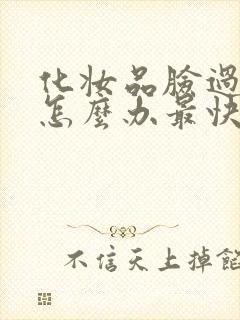 化妝品臉過
怎麼办最快
不信天上掉餡